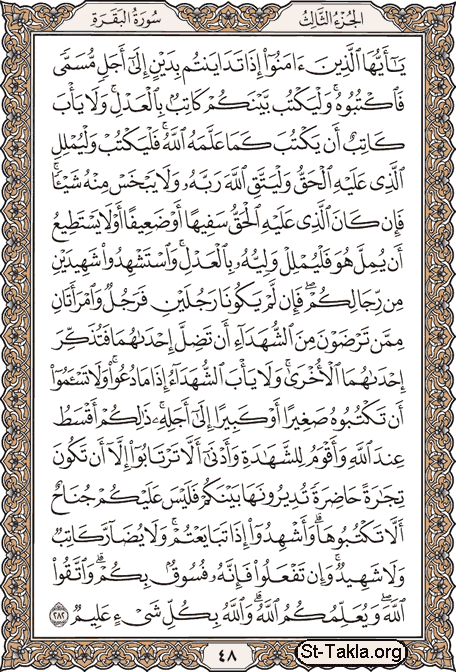 الجزء الثالث سورة البقرة
يَٰٓأَيُّهَا ٱلَّذِينَ ءَامَنُوٓاْ إِذَا تَدَايَنتُم بِدَيْنٍ إِلَىٰٓ أَجَلٍ مُّسَمًّى
فَٱكْتُبُوهُ ۚ وَلْيَكْتُب بَّيْنَكُمْ كَاتِبٌۢ بِٱلْعَدْلِ ۚ وَلَا يَأْبَ
كَاتِبٌ أَن يَكْتُبَ كَمَا عَلَّمَهُ ٱللَّهُ ۚ فَلْيَكْتُبْ وَلْيُمْلِلِ
ٱلَّذِى عَلَيْهِ ٱلْحَقُّ وَلْيَتَّقِ ٱللَّهَ رَبَّهُۥ وَلَا يَبْخَسْ مِنْهُ شَيْـًٔا ۚ
فَإِن كَانَ ٱلَّذِى عَلَيْهِ ٱلْحَقُّ سَفِيهًا أَوْ ضَعِيفًا أَوْ لَا يَسْتَطِيعُ
أَن يُمِلَّ هُوَ فَلْيُمْلِلْ وَلِيُّهُۥ بِٱلْعَدْلِ ۚ وَٱسْتَشْهِدُواْ شَهِيدَيْنِ
مِن رِّجَالِكُمْ ۖ فَإِن لَّمْ يَكُونَا رَجُلَيْنِ فَرَجُلٌ وَٱمْرَأَتَانِ
مِمَّن تَرْضَوْنَ مِنَ ٱلشُّهَدَآءِ أَن تَضِلَّ إِحْدَىٰهُمَا فَتُذَكِّرَ
إِحْدَىٰهُمَا ٱلْأُخْرَىٰ ۚ وَلَا يَأْبَ ٱلشُّهَدَآءُ إِذَا مَا دُعُواْ ۚ وَلَا تَسْـَٔمُوٓاْ
أَن تَكْتُبُوهُ صَغِيرًا أَوْ كَبِيرًا إِلَىٰٓ أَجَلِهِۦ ۚ ذَٰلِكُمْ أَقْسَطُ
عِندَ ٱللَّهِ وَأَقْوَمُ لِلشَّهَٰدَةِ وَأَدْنَىٰٓ أَلَّا تَرْتَابُوٓاْ ۖ إِلَّآ أَن تَكُونَ
تِجَٰرَةً حَاضِرَةً تُدِيرُونَهَا بَيْنَكُمْ فَلَيْسَ عَلَيْكُمْ جُنَاحٌ
أَلَّا تَكْتُبُوهَا ۗ وَأَشْهِدُوٓاْ إِذَا تَبَايَعْتُمْ ۚ وَلَا يُضَآرَّ كَاتِبٌ
وَلَا شَهِيدٌ ۚ وَإِن تَفْعَلُواْ فَإِنَّهُۥ فُسُوقٌۢ بِكُمْ ۗ وَٱتَّقُواْ
ٱللَّهَ ۖ وَيُعَلِّمُكُمُ ٱللَّهُ ۗ وَٱللَّهُ بِكُلِّ شَىْءٍ عَلِيمٌ ٢٨٢
٤٨
St-Takla.org